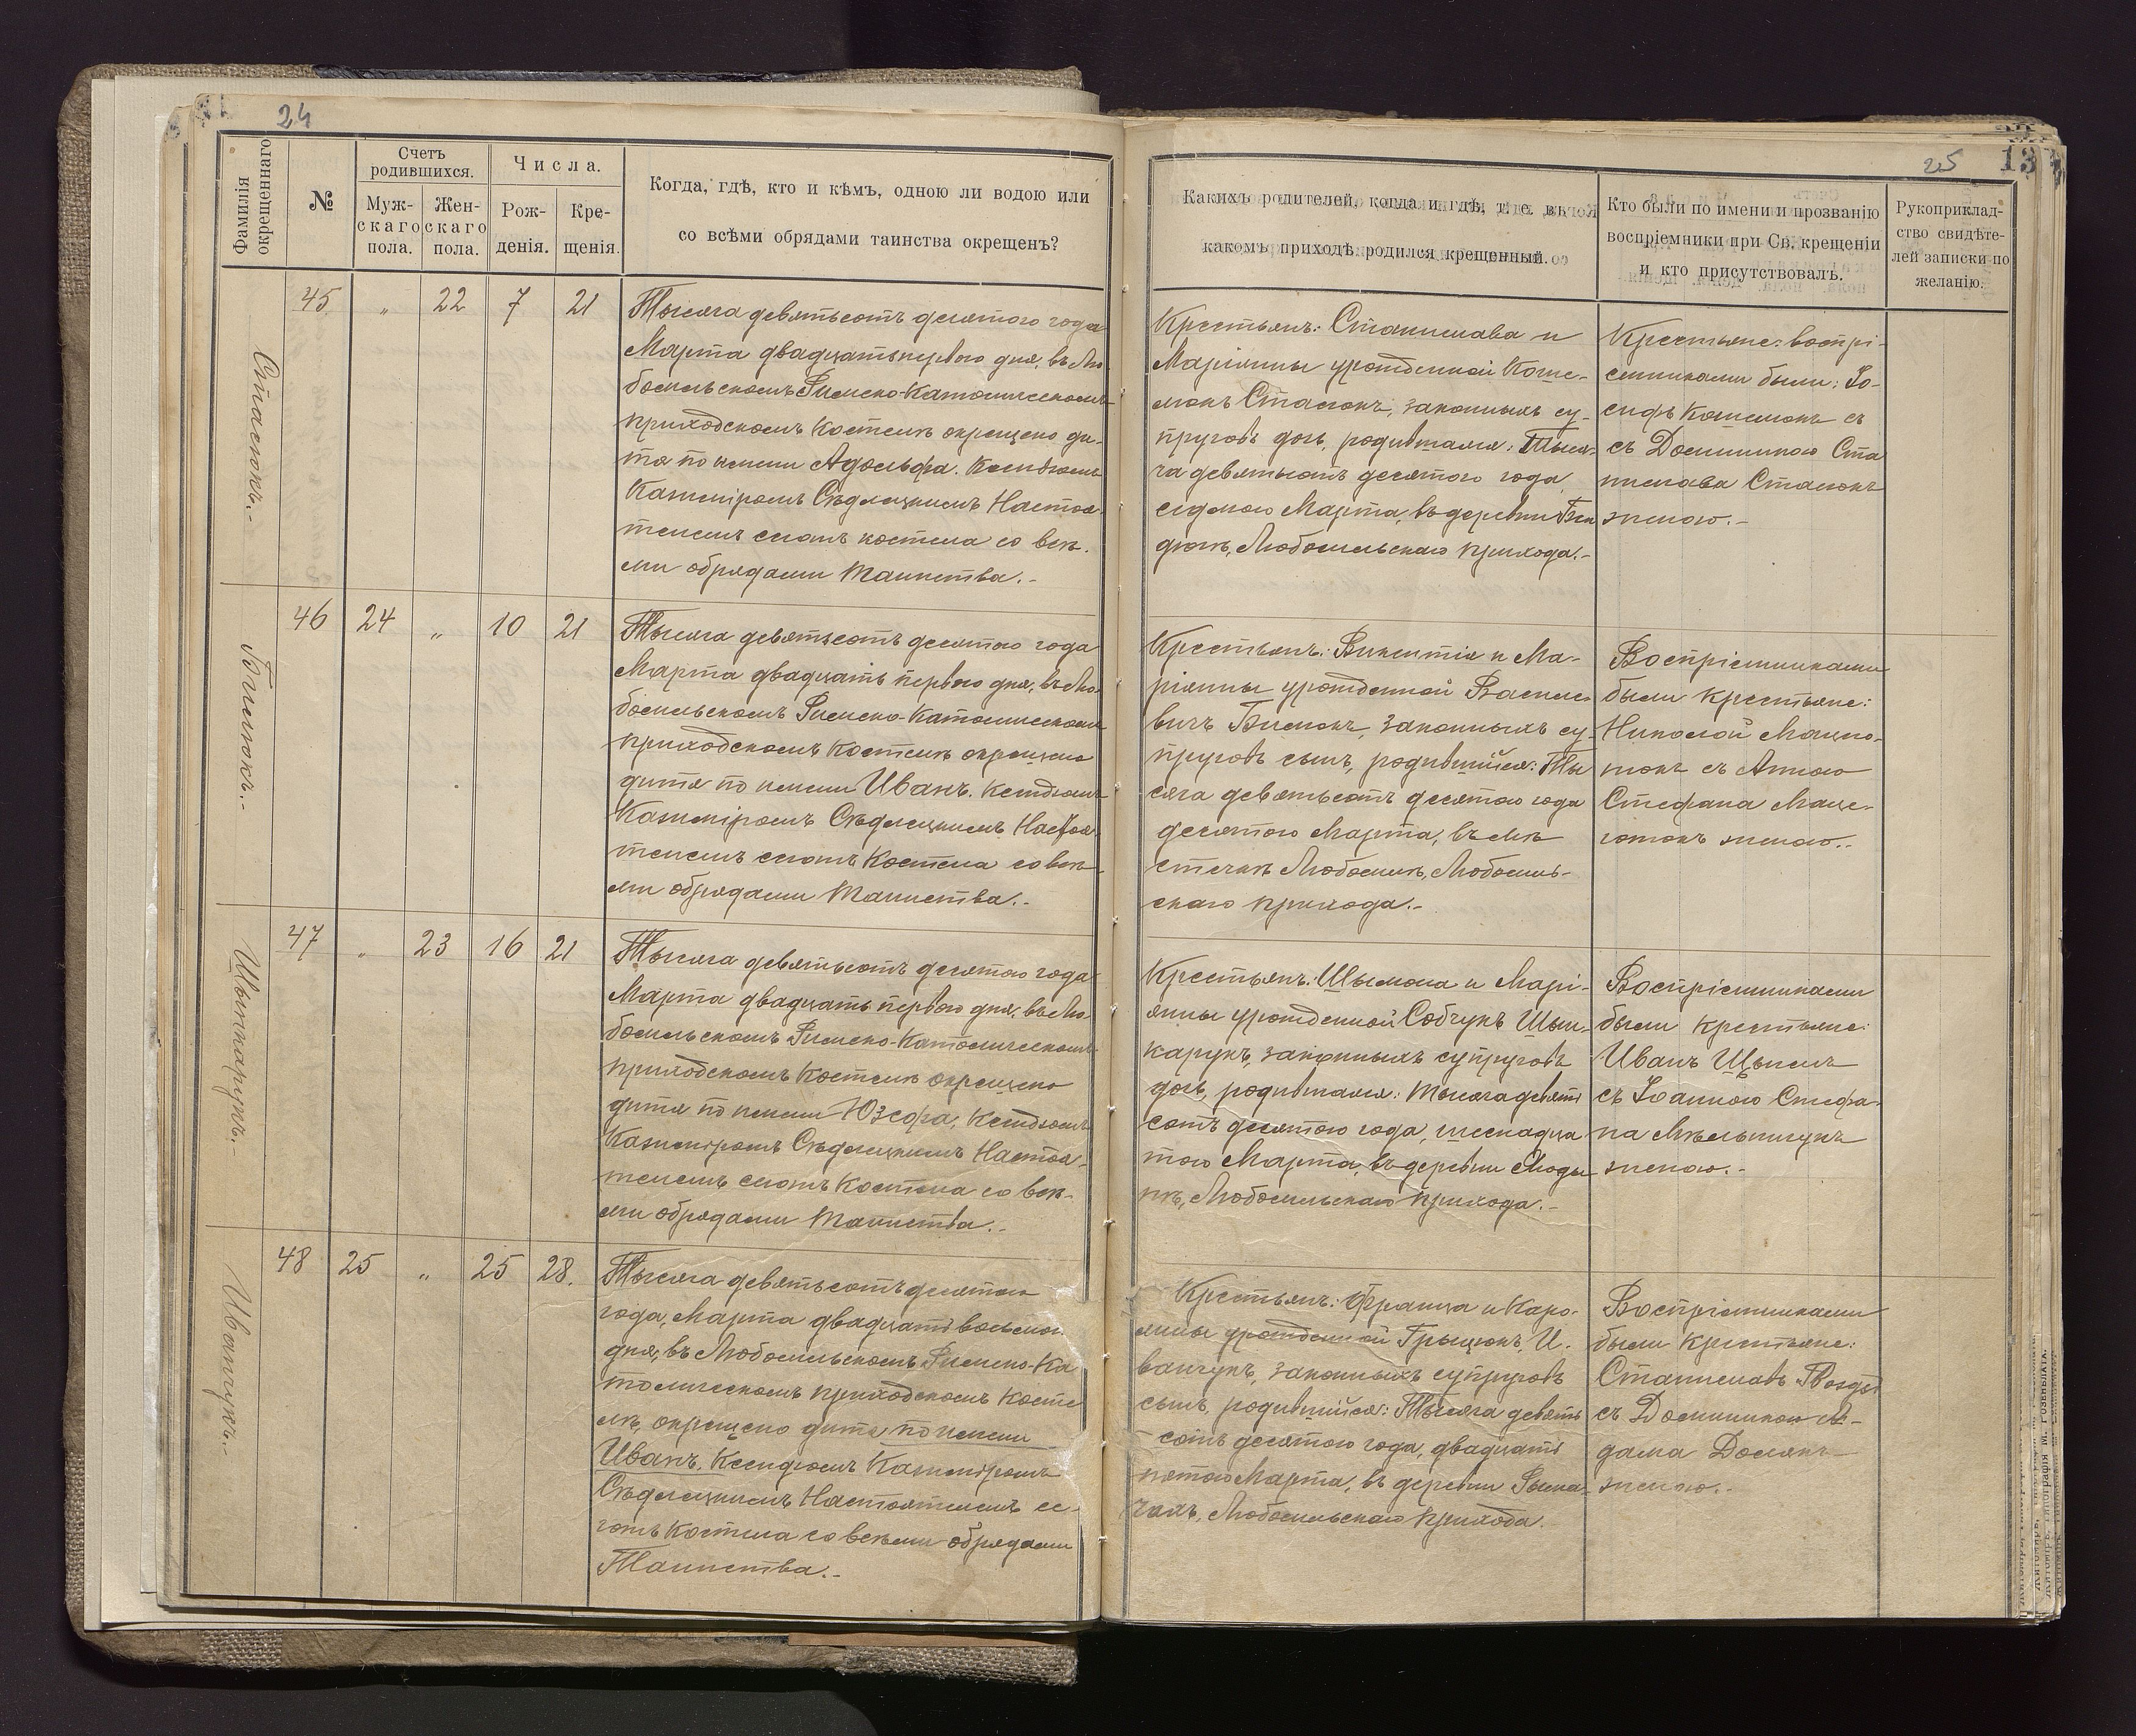 24
Фамилія окрещеннаго
№
Счетъ родившихся.
Муж-
скаго
пола.
Жен-
скаго
пола.
Числа.
Рож-
денія.
Кре-
щенія.
Когда, гдѣ, кто и кѣмъ, одною ли водою или
со всѣми обрядами таинства окрещенъ?
Сташокъ.-
45 „ 22 7 21
Тысяча девятьсотъ десятого года
Марта двадцатьпервого дня, въ Лю-
бомльскомъ Римско-Католическомъ
приходскомъ костелѣ окрещено ди-
тя по имени Адольфа. Ксендзомъ
Казиміромъ Сѣдлецкимъ Настоя-
телемъ сегожъ костела со всѣ-
ми обрядами Таинства.-
Билюкъ.-
46 24 „ 10 21
Тысяча девятьсотъ десятого года
Марта двадцать первого дня, въ Лю-
бомльскомъ Римско-Католическомъ
приходскомъ костелѣ окрещено
дитя по имени Иванъ. Ксендзомъ
Казиміромъ Сѣдлецкимъ Настоя-
телемъ сегожъ Костела со всѣ-
ми обрядами Таинства.-
Шынкарукъ.-
47 „ 23 16 21
Тысяча девятьсотъ десятого года
Марта двадцать первого дня, въ Лю-
бомльскомъ Римско-Католическомъ
приходскомъ Костелѣ окрещено
дитя по имени Юзефа, Ксендзомъ
Казиміромъ Сѣдлецкимъ Настоя-
телемъ сегожъ Костела со всѣ-
ми обрядами Таинства.-
Иванчукъ.-
48 25 „ 25 28.
Тысяча девятьсотъ десятого
года, Марта двадцать восьмого
дня, въ Любомльскомъ Римско-Ка
толическомъ приходскомъ Косте
лѣ, окрещено дитя по имени
Иванъ. Ксендзомъ Казиміромъ
Сѣдлецкимъ Настоятелемъ се-
гожъ Костела со всѣми обрядами
Таинства.-
25
13
Какихъ родителей, когда и гдѣ, т. е. въ
какомъ приходѣ родился крещенный.
Кто были по имени и прозванію
воспріемники при Св. крещеніи
и кто присутствовалъ.
Рукоприклад-
ство свидѣте-
лей записки по
желанію.
Крестьянъ: Станислава и
Маріянны урожденной Коше-
люкъ Сташокъ, законныхъ су-
пруговъ дочь, родившаяся: Тыся-
ча девятьсотъ десятого года
седмого Марта, въ деревни
Любомльскаго прихода.-
Крестьяне: воспрі-
емниками были: Іо-
сифъ Кошелюкъ съ
съ Доминикою Ста
нислава Сташокъ
женою.-
Крестьянъ: Викентія и Ма-
ріянны урожденной Василе-
вичъ Билюкъ, законныхъ су-
пруговъ сынъ, родившійся: Ты
сяча девятьсотъ десятого года
десятого Марта, въ мѣ
стечкѣ Любомлѣ, Любомль-
скаго прихода.-
Воспріемниками
были крестьяне:
Николой
съ Анною
Стефана
женою.-
Крестьянъ: Шымона и Марі-
янны урожденной Собчукъ Шын-
карукъ, законныхъ супруговъ
дочь, родившаяся: Тысяча девять
сотъ десятого года, шеснадца
того Марта, въ деревни
Любомльскаго прихода.-
Воспріемниками
были крестьяне:
Иванъ
съ Іоанною Стефа-
на Мѣльничукъ
женою.-
Крестьянъ: Франца и Каро-
лины урожденной Грыцюкъ, И-
ванчукъ, законныхъ супруговъ
сынъ, родившійся: Тысяча девять
сотъ десятого года, двадцать
пятого Марта, въ деревни Рыма-
чахъ, Любомльскаго прихода.-
Воспріемниками
были крестьяне:
Станиславъ Гвоздь
съ Доминикою А-
дама
женою.-